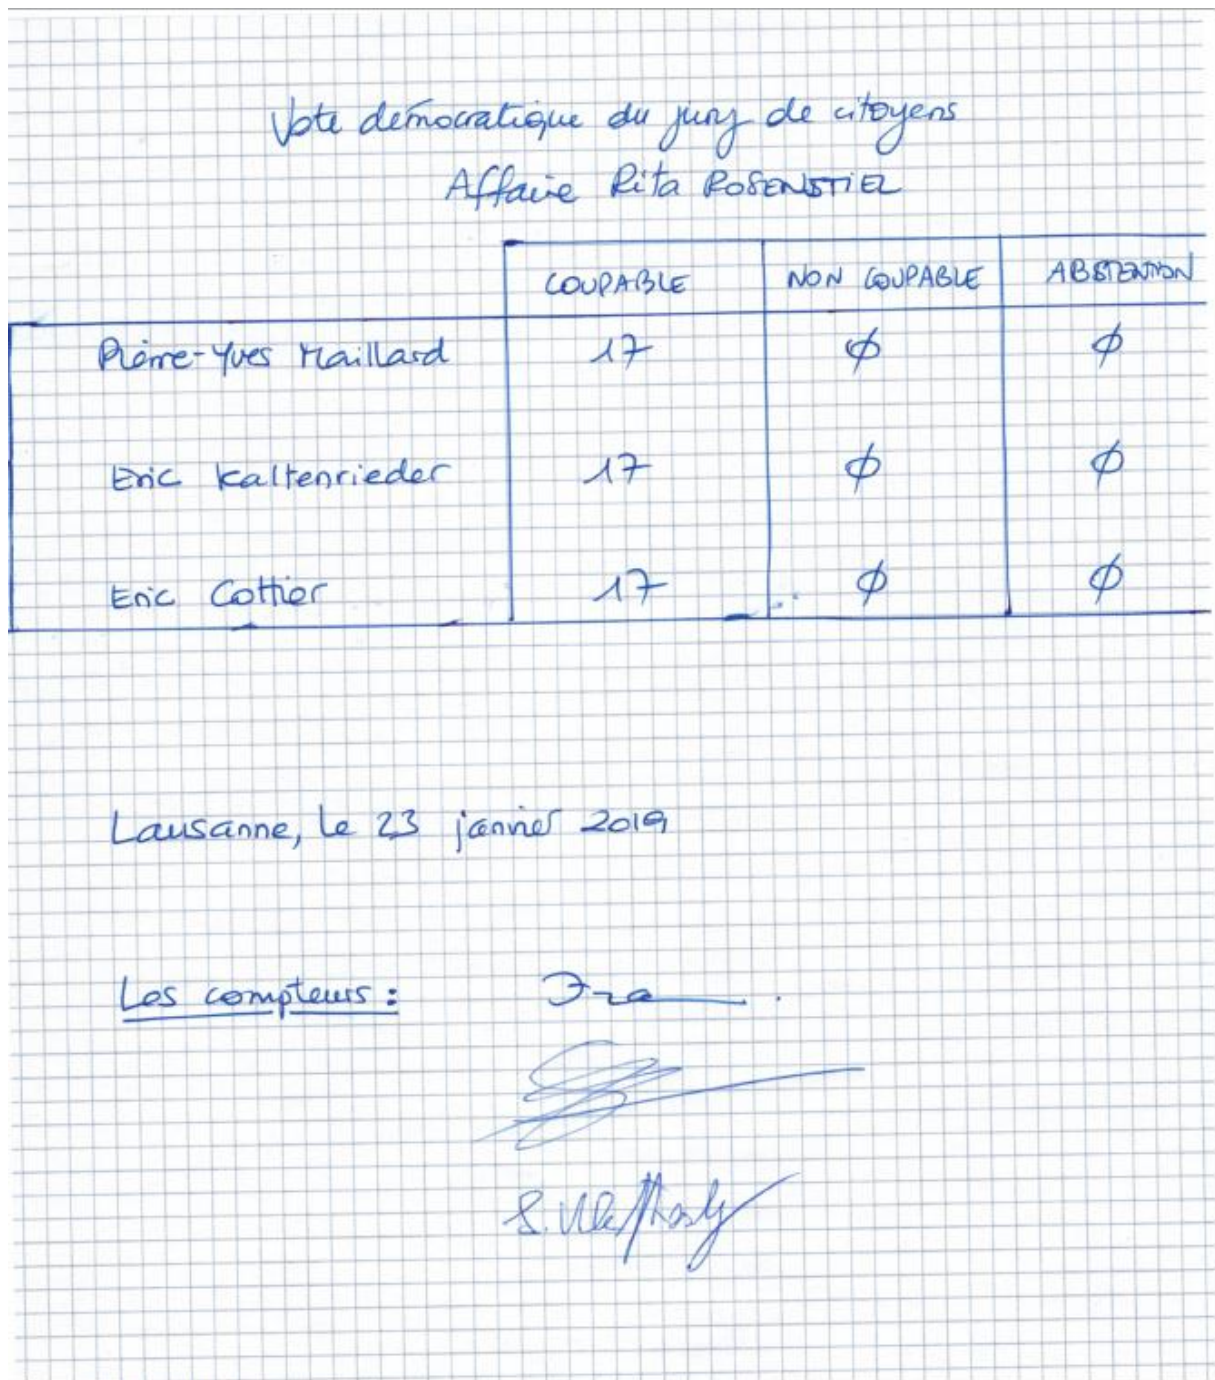 Vote démocratique du jury de citoyens
Affaire Rita ROSENSTIEL
COUPABLE NON COUPABLE ABSTENTION
Pierre-Yves Maillard 17 ϕ ϕ
Eric Kaltenrieder 17 ϕ ϕ
Eric Cottier 17 ϕ ϕ
Lausanne, le 23 janvier 2019
Les compteurs :